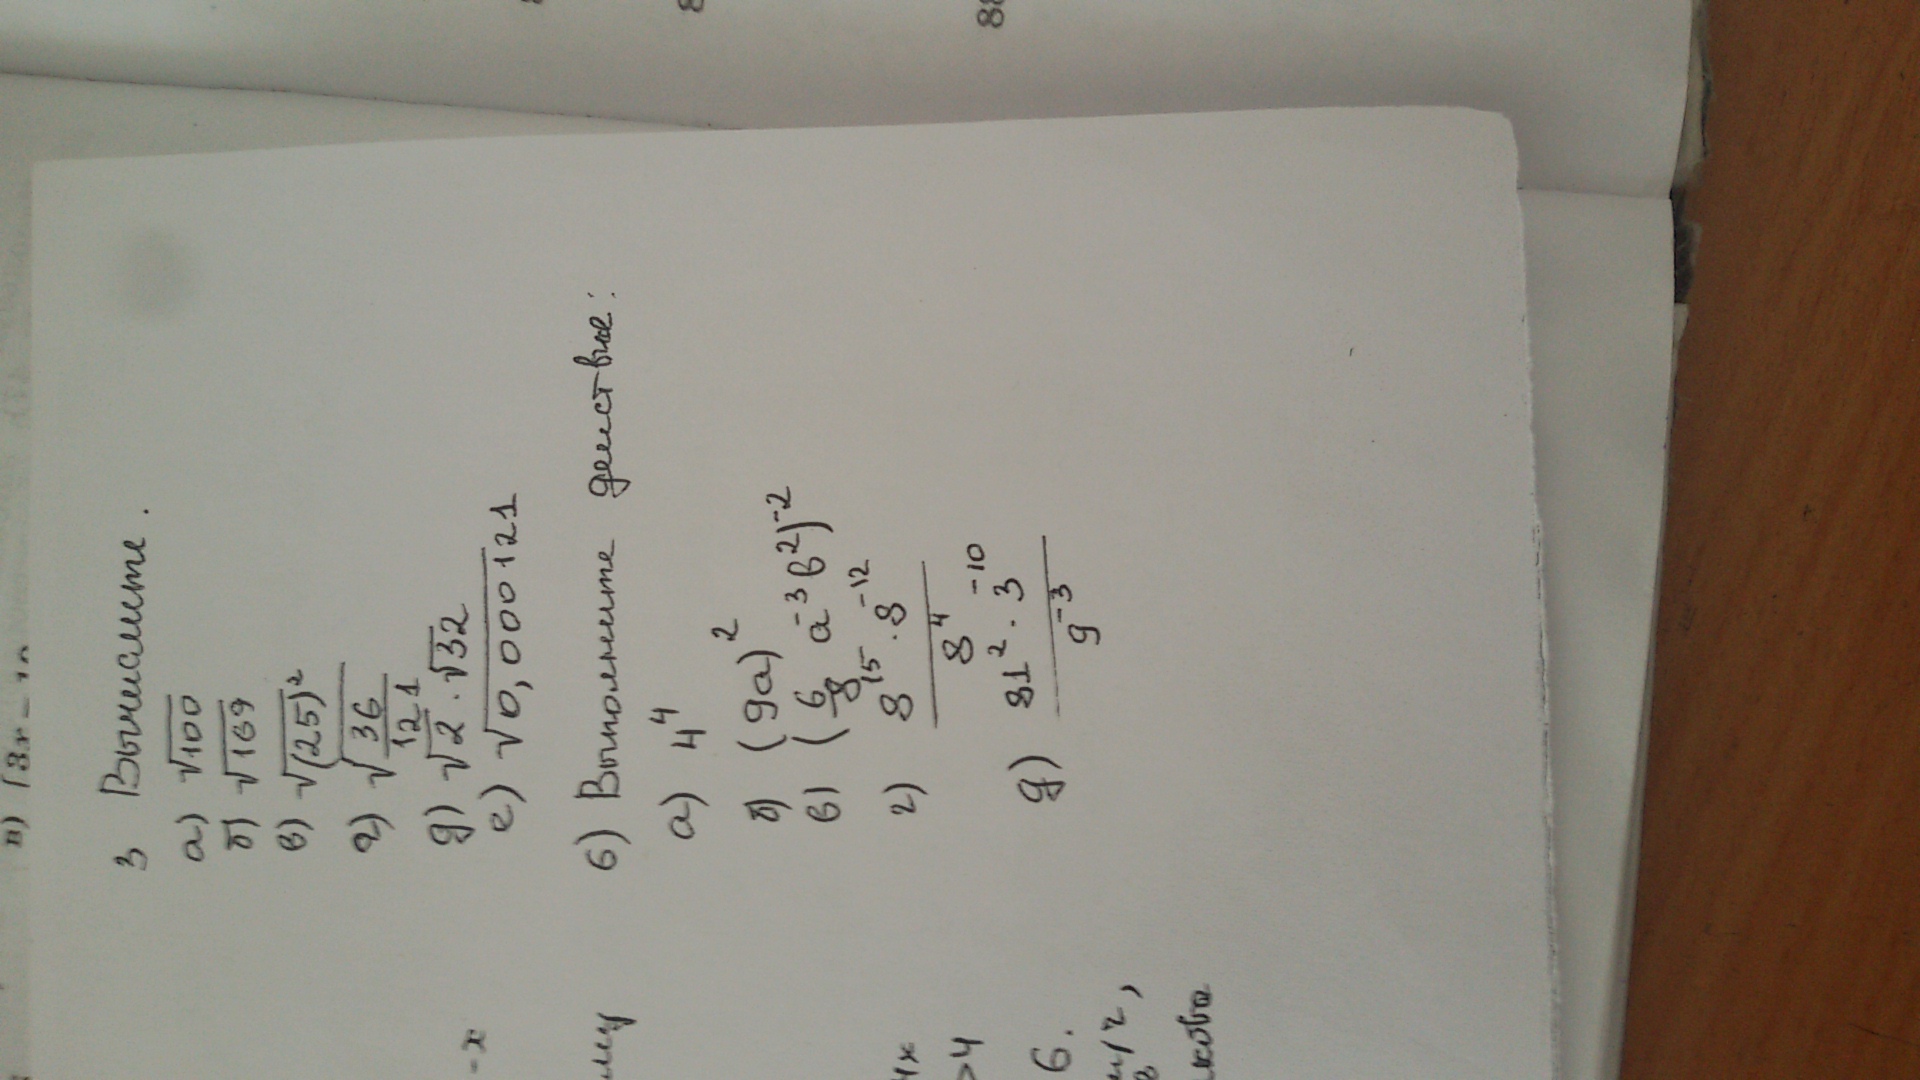 3 Вычислите.
а) √100
б) √169
в) √(25)²
г) √36/121
д) √2 · √32
е) √0,000121
6) Выполните действие:
а) 4⁴
б) (9a)²
в) (6/8 a⁻³ b²)⁻²
г) 8¹⁵ · 8⁻¹² / 8⁴
д) 81² · 3⁻¹⁰ / 9⁻³
-x
4x
>4
6.